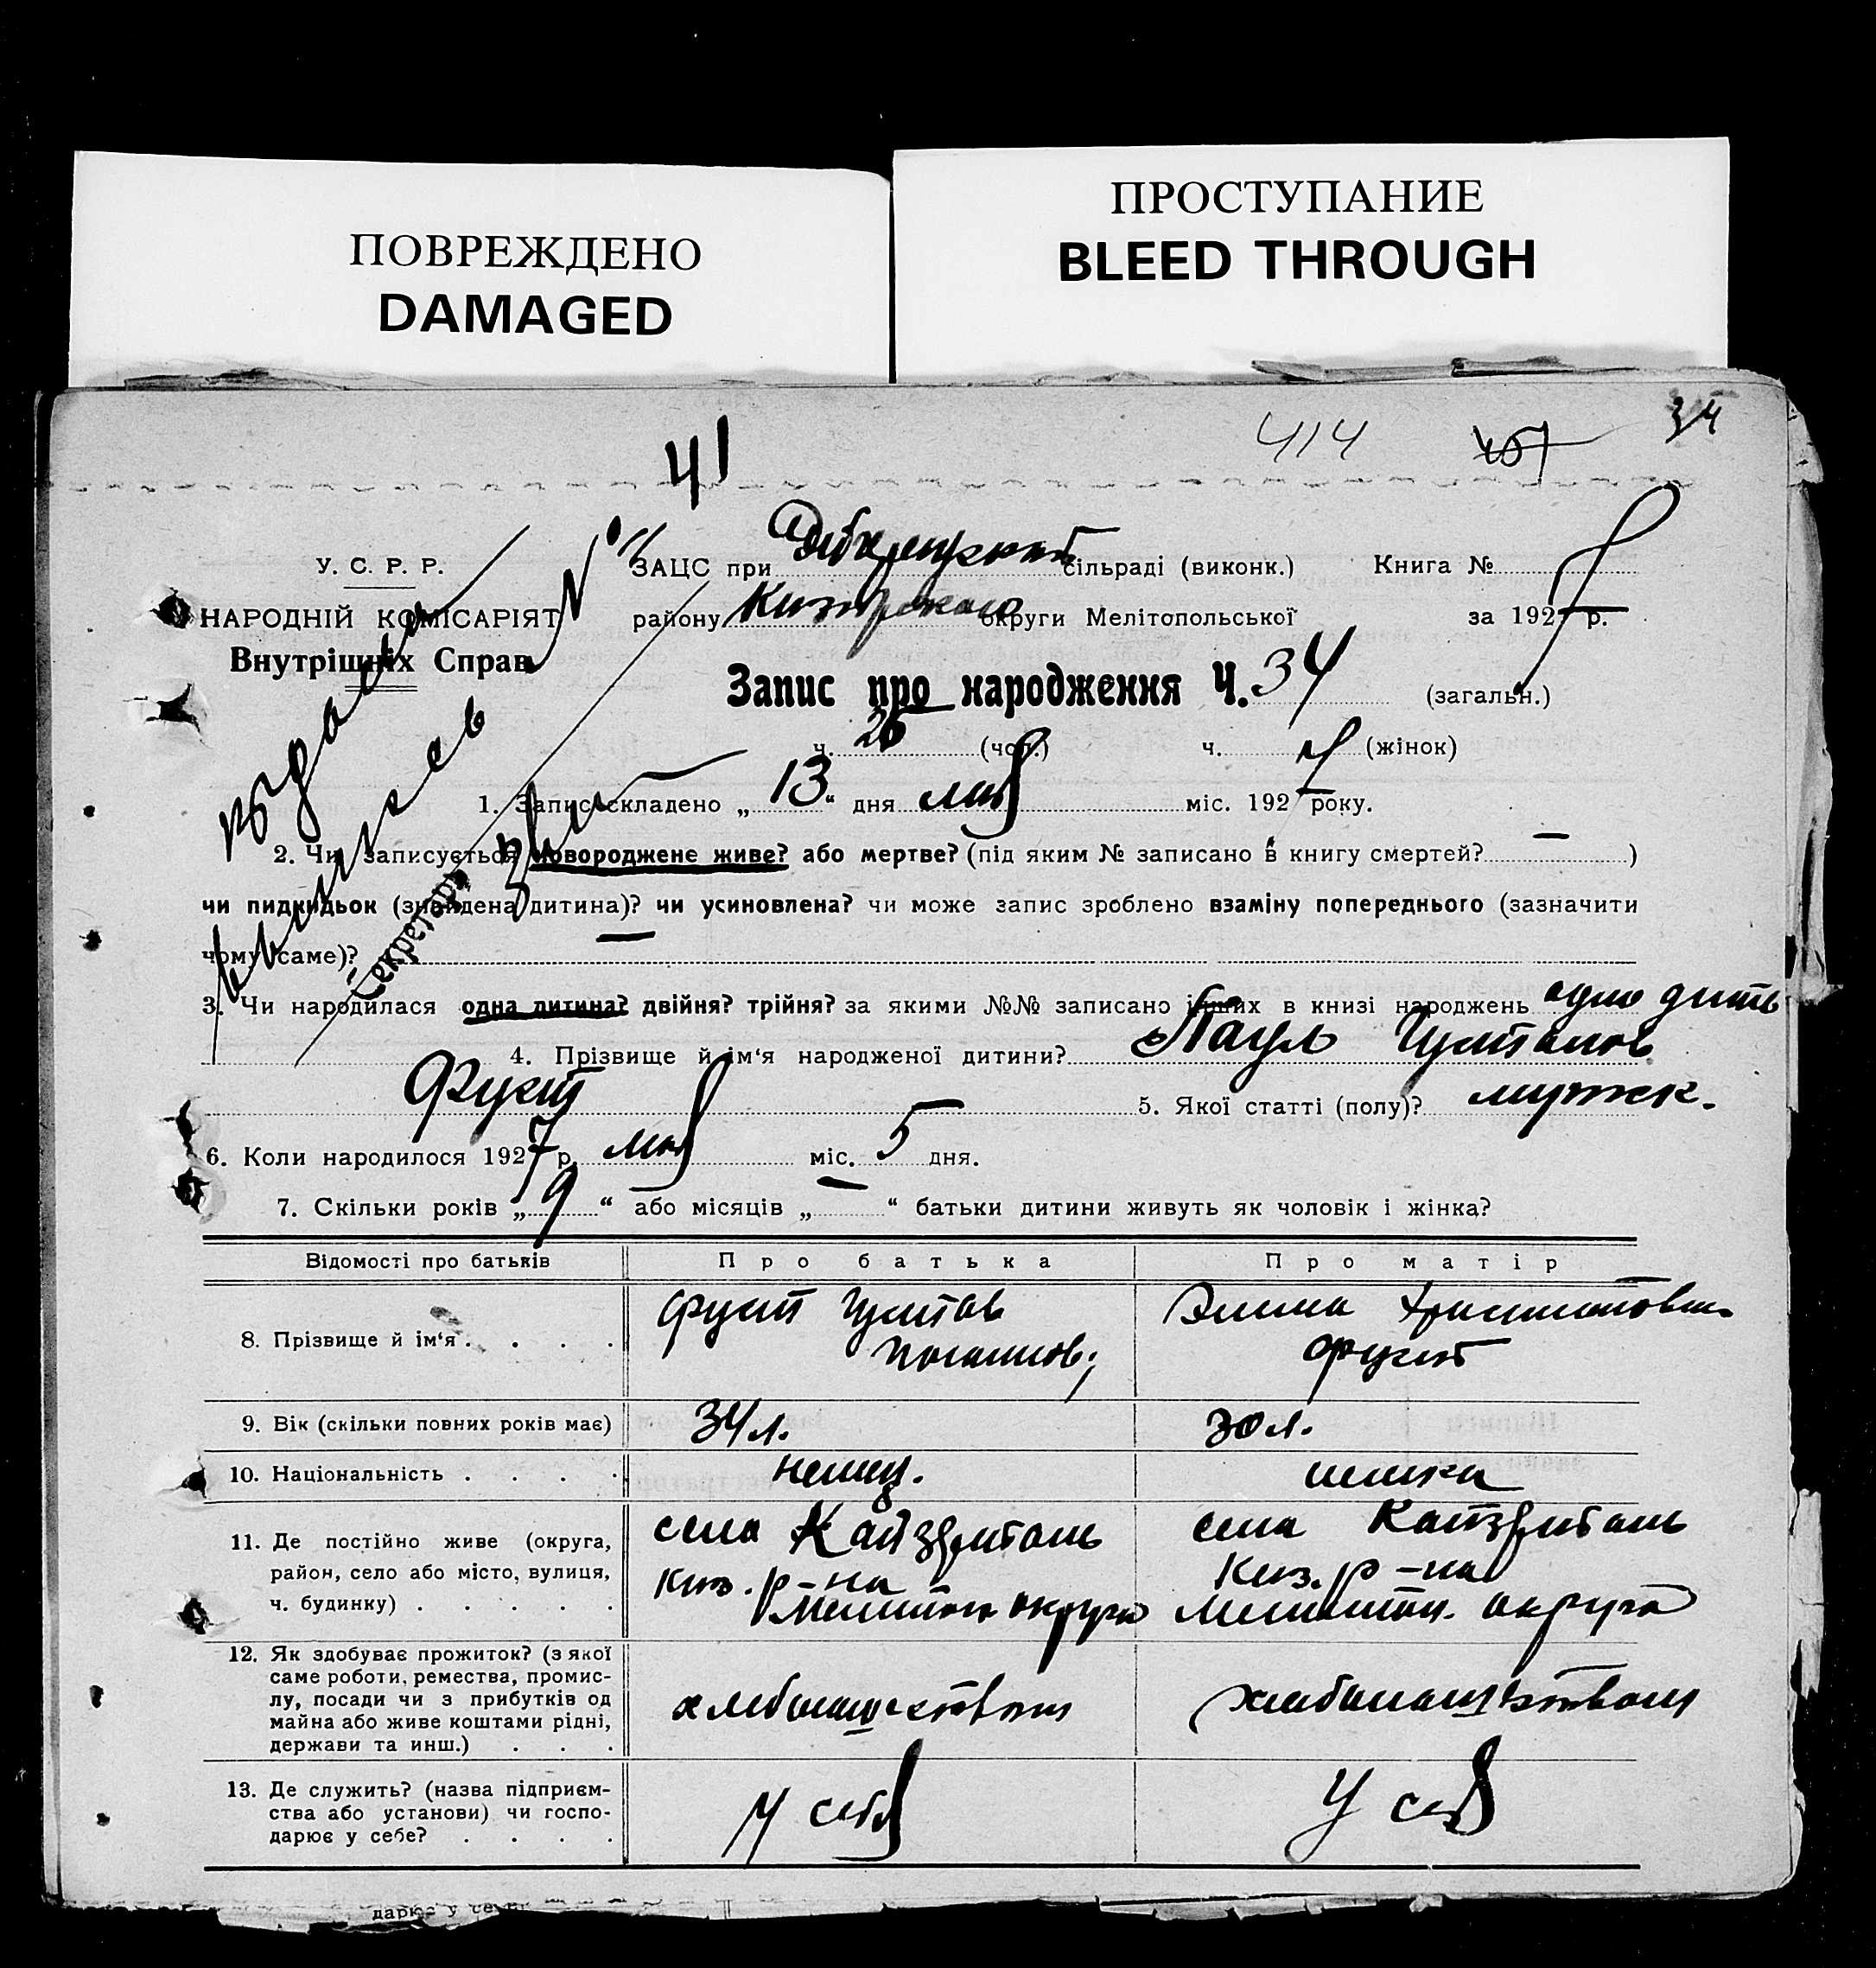 ПОВРЕЖДЕНО
DAMAGED
ПРОСТУПАНИЕ
BLEED THROUGH
34
414
41
У. С. Р. Р.
НАРОДНІЙ КОМІСАРІЯТ
Внутрішніх Справ
ЗАЦС при сільраді (виконк.) Книга №
району округи Мелітопольської за 1927 р.
Запис про народження Ч. 34 (загальн.)
ч. 26 (чол.) ч. (жінок)
1. Запис складено „13“ дня мая міс. 1927 року.
2. Чи записується новороджене живе? або мертве? (під яким № записано в книгу смертей? — )
чи пидкидьок (знайдена дитина)? чи усиновлена? чи може запис зроблено взаміну попереднього (зазначити
чому саме)? —
Секретарь
3. Чи народилася одна дитина? двійня? трійня? за якими №№ записано інших в книзі народжень одно дить
4. Прізвище й ім‘я народженої дитини? Паул Густавов
Фукст
5. Якої статті (полу)? мужск.
6. Коли народилося 1927 р. мая міс. 5 дня.
7. Скільки років „9“ або місяців „—“ батьки дитини живуть як чоловік і жінка?
Відомості про батьків Про батька Про матір
8. Прізвище й ім‘я . . . . Фукст Густав Эмма
Фукст
9. Вік (скільки повних років має) 34 л. 30 л.
10. Національність . . . . немец. немка
11. Де постійно живе (округа,
район, село або місто, вулиця,
ч. будинку) . . . . .
села Кайзерталь
Киз. р-на
Мелитоп округа
села Кайзерталь
Киз. р-на
Мелитоп. округа
12. Як здобуває прожиток? (з якої
саме роботи, ремества, промис-
лу, посади чи з прибутків од
майна або живе коштами рідні,
держави та инш.) . . .
хлебопашеством хлебопашеством
13. Де служить? (назва підприєм-
ства або установи) чи госпо-
дарює у себе? . . . .
у себя У себя
дарює у себе